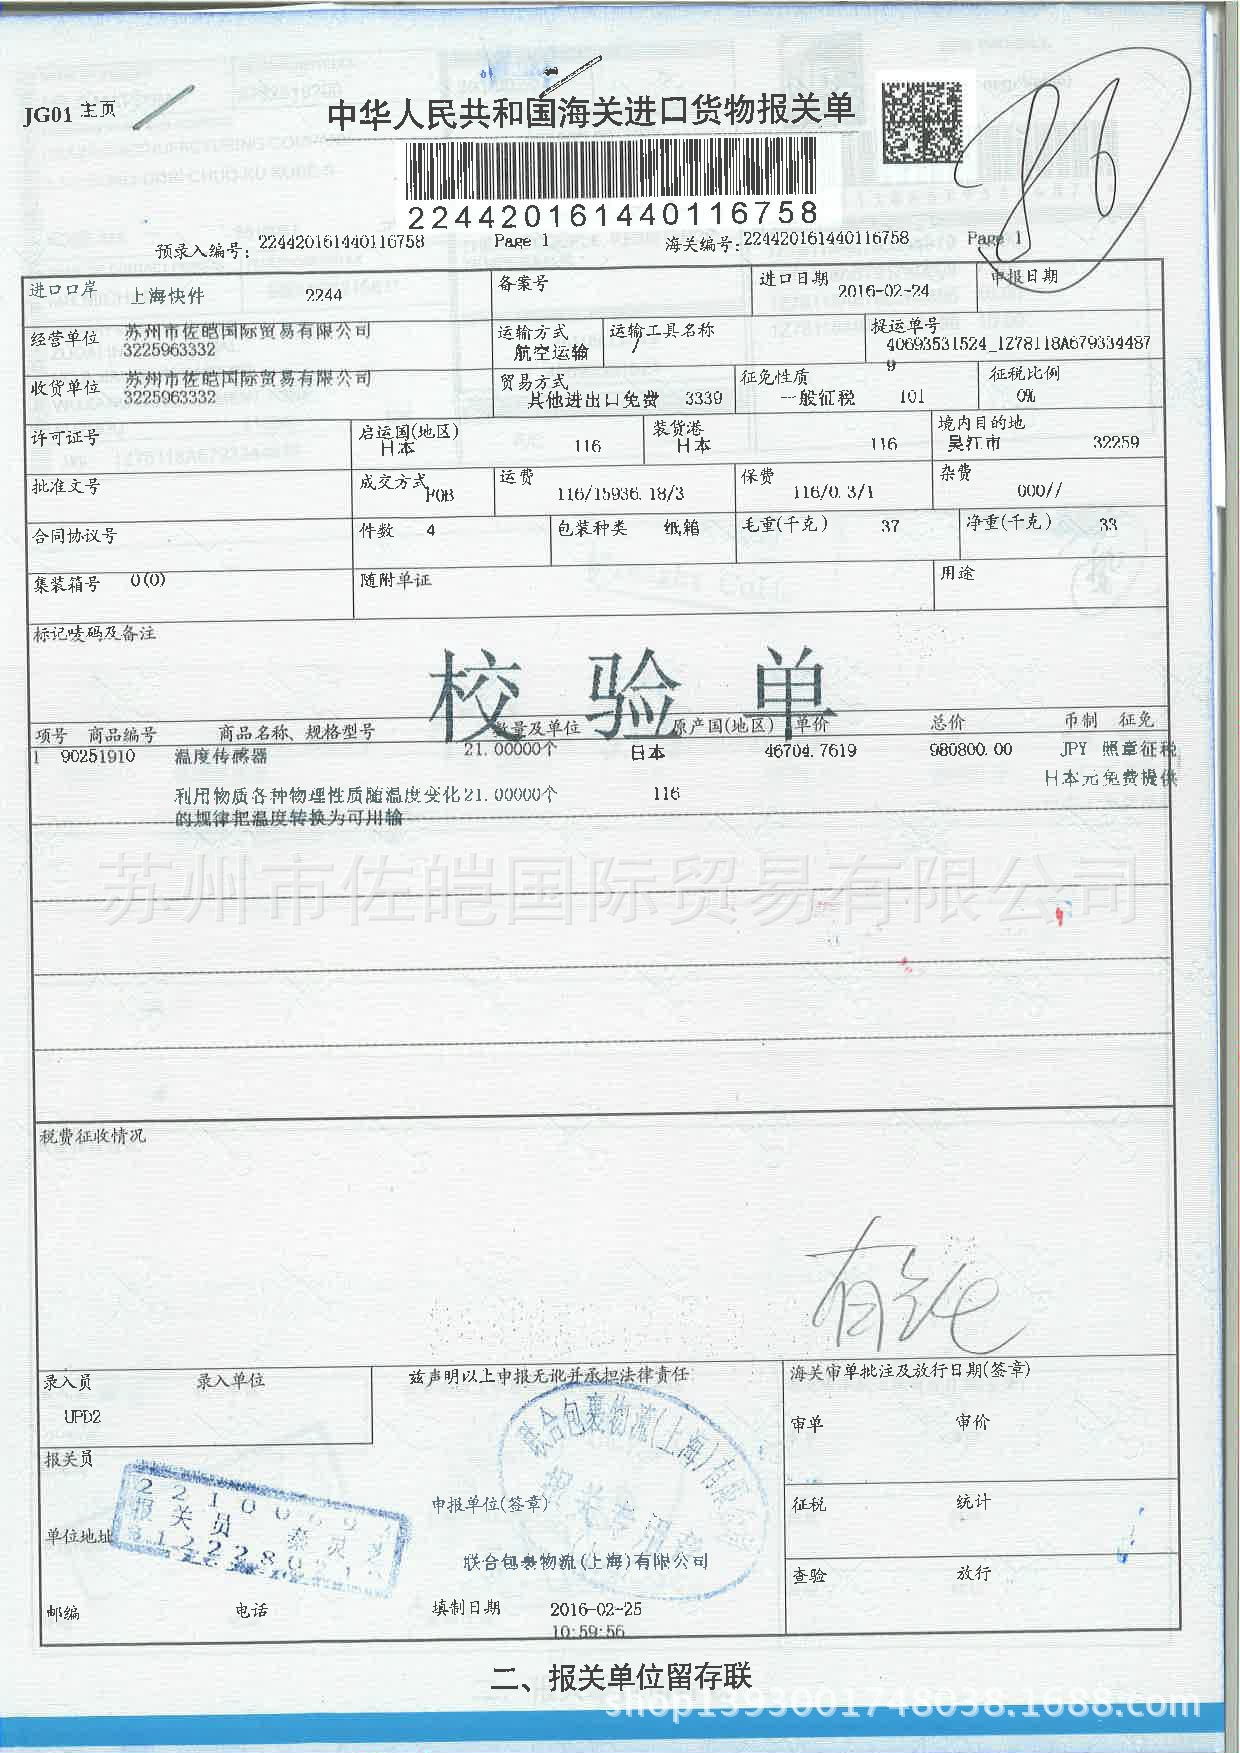 JG01 主页
中华人民共和国海关进口货物报关单
224420161440116758
预录入编号: 224420161440116758 Page 1 海关编号: 224420161440116758 Page 1
进口口岸 上海快件 2244 备案号 进口日期 2016-02-24 申报日期
经营单位 苏州市佐皑国际贸易有限公司 3225963332 运输方式 航空运输 运输工具名称 / 提运单号 40693531524_1Z78118A6793344879
收货单位 苏州市佐皑国际贸易有限公司 3225963332 贸易方式 其他进出口免费 3339 征免性质 一般征税 101 征税比例 0%
许可证号 启运国(地区) 日本 116 装货港 日本 116 境内目的地 吴江市 32259
批准文号 成交方式 FOB 运费 116/15936.18/3 保费 116/0.3/1 杂费 000//
合同协议号 件数 4 包装种类 纸箱 毛重(千克) 37 净重(千克) 33
集装箱号 0(0) 随附单证 用途
标记唛码及备注
校验单
项号 商品编号 商品名称、规格型号 数量及单位 原产国(地区) 单价 总价 币制 征免
1 90251910 温度传感器 21.00000个 日本 46704.7619 980800.00 JPY 照章征税
日本元免费提供
利用物质各种物理性质随温度变化 21.00000个 116
的规律把温度转换为可用输
苏州市佐皑国际贸易有限公司
税费征收情况
录入员 录入单位 兹声明以上申报无讹并承担法律责任 海关审单批注及放行日期(签章)
UPD2 审单 审价
报关员
联合包裹物流(上海)有限公司
报关专用章
报关员
申报单位(签章) 征税 统计
单位地址
联合包裹物流(上海)有限公司
查验 放行
邮编 电话 填制日期 2016-02-25
10:59:56
二、报关单位留存联
shop1393001748038.1688.com